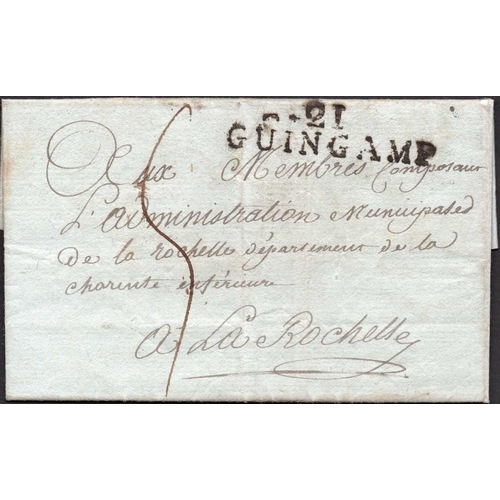 21
GUINGAMP
Aux Membres Composant
L'administration Municipale
De la rochelle département de la
charente inférieure
a La Rochelle